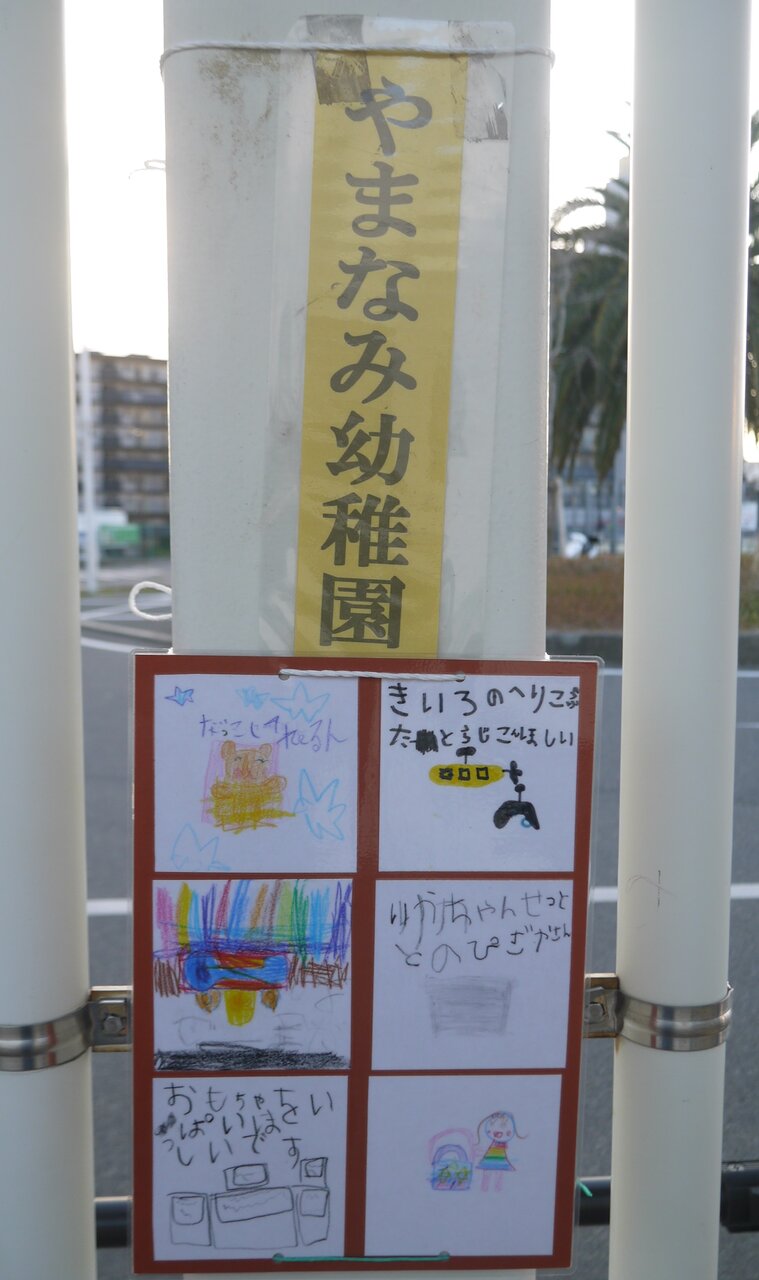 やまなみ幼稚園
だっこじてれるん
きいろのへりこぷ
たーとらじこんほしい
りかちゃんせっと
とのぴざやさん
おもちゃをい
っぱいほ
しいです